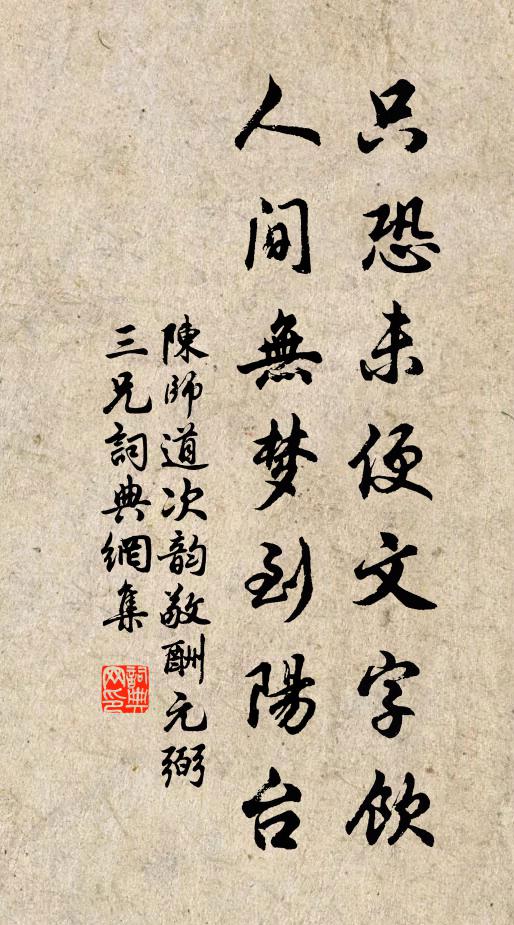 只恐未便文字飲
人间無梦到陽台
陳師道次韵敬酬元弼
三兄詞典網集
詞典網印